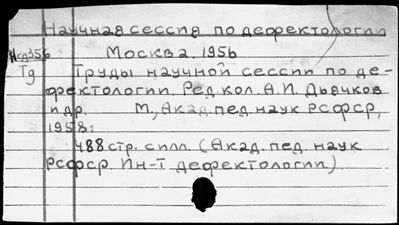 Научная сессия по дефектологии
Нсд356 Москва. 1956
Тд Труды научной сессии по де-
фектологии. Ред.кол. А.И. Дьячков
и др. М., Акад.пед.наук РСФСР,
1958:
488 стр. с илл. (Акад.пед. наук
РСФСР. Ин-т дефектологии.)